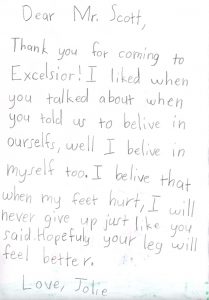 Dear Mr. Scott,
Thank you for coming to
Excelsior! I liked when
you talked about when
you told us to belive in
ourselfs, well I belive in
myself too. I belive that
when my feet hurt, I will
never give up just like you
said. Hopefuly your leg will
feel better.
Love, Jolie